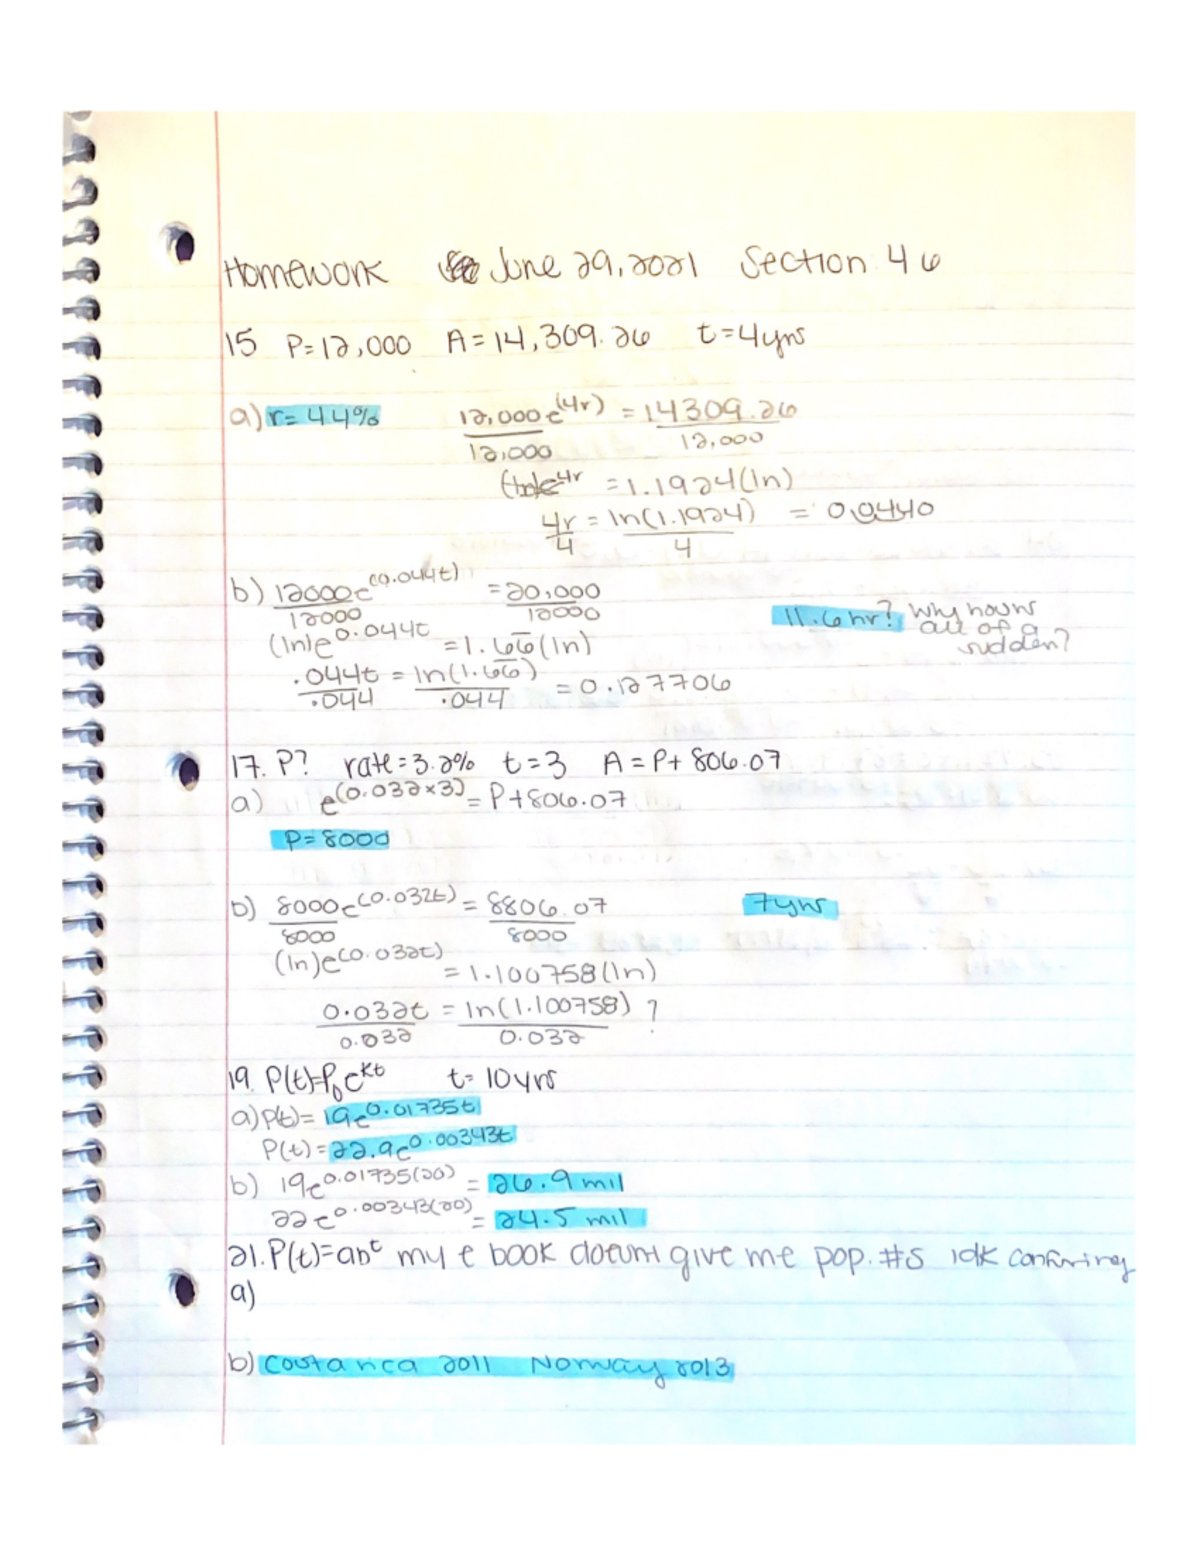 Homework June 29, 2021 Section 4 6
15 P=12,000 A=14,309.26 t=4yrs
a) r= 4.4% 12,000e^(4r) = 14309.26
12,000 12,000
(ln)e^4r = 1.1924(ln)
4r = ln(1.1924) = 0.0440
4 4
b) 12000e^(0.044t) = 20,000
12000 12000
11.6 hr? why hours all of a sudden?
(ln)e^0.044t = 1.66(ln)
.044t = ln(1.66) = 0.127706
.044 .044
17. P? rate=3.2% t=3 A=P+806.07
a) e^(0.032×3) = P+806.07
P=8000
b) 8000e^(0.032t) = 8806.07 7yrs
8000 8000
(ln)e^(0.032t) = 1.100758(ln)
0.032t = ln(1.100758) ?
0.032 0.032
19. P(t)=P₀e^kt t= 10yrs
a) P(t)= 19e^0.01735t
P(t)=22.9e^0.00343t
b) 19e^0.01735(20) = 26.9 mil
22e^0.00343(20) = 24.5 mil
21. P(t)=ab^t my e book doesnt give me pop. #s idk confusing
a)
b) Costa rica 2011 Norway 2013